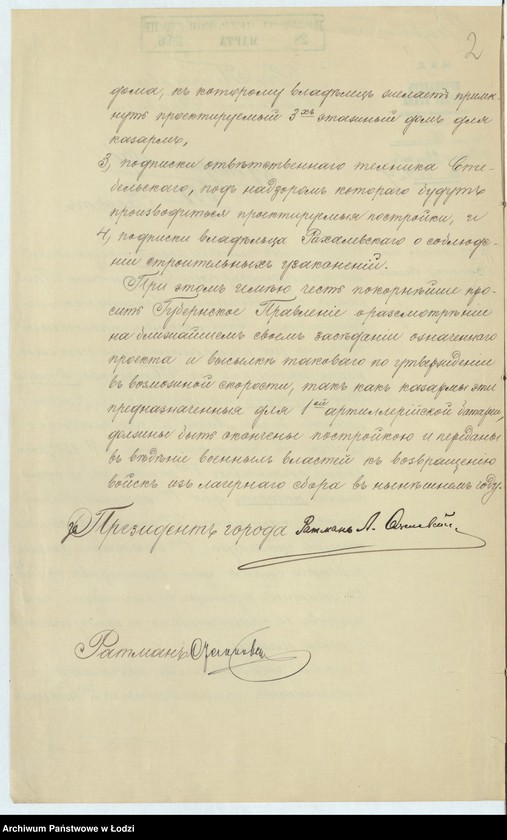 2
дома, къ которому владѣлецъ желаетъ примк-
нуть проектируемый 3хъ этажный домъ для
казармъ,
3, подписки отвѣтственнаго техника Сте-
бельскаго, подъ надзоромъ котораго будутъ
производиться проектируемыя постройки, и
4, подписки владѣльца Рахалевскаго о соблюде-
ніи строительныхъ узаконеній.
При этомъ имѣю честь покорнѣйше про-
сить Губернское Правленіе о разсмотрѣніи
на ближайшемъ своемъ засѣданіи означеннаго
проекта и высылкѣ таковаго по утвержденіи
въ возможной скорости, такъ какъ казармы эти
предназначенныя для 1ой артиллерійской батареи,
должны быть окончены постройкою и переданы
въ вѣдѣніе военнымъ властей къ возвращенію
войскъ изъ лагернаго сбора въ нынѣшнемъ году.
за Президентъ города Ратманъ А.
Ратманъ
МАРТА
Archiwum Państwowe w Łodzi